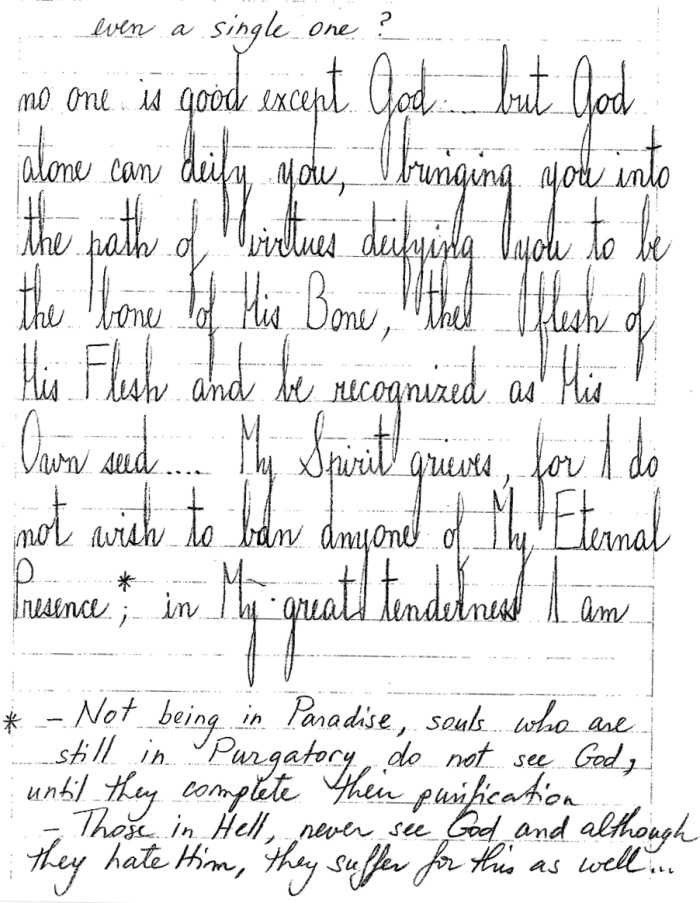 even a single one ?
no one is good except God.... but God
alone can deify you, bringing you into
the path of virtues deifying you to be
the bone of His Bone, the flesh of
His Flesh and be recognized as His
Own seed.... My Spirit grieves, for I do
not wish to ban anyone of My Eternal
Presence*; in My great tenderness I am
* - Not being in Paradise, souls who are
still in Purgatory do not see God,
until they complete their purification
- Those in Hell, never see God and although
they hate Him, they suffer for this as well...